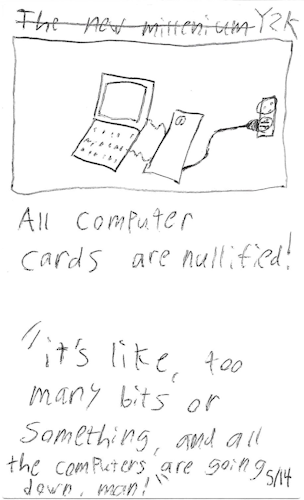 The new millenium Y2k
All computer
cards are nullified!
"it's like, too
many bits or
something, and all
the computers are going
down, man!"
5/14